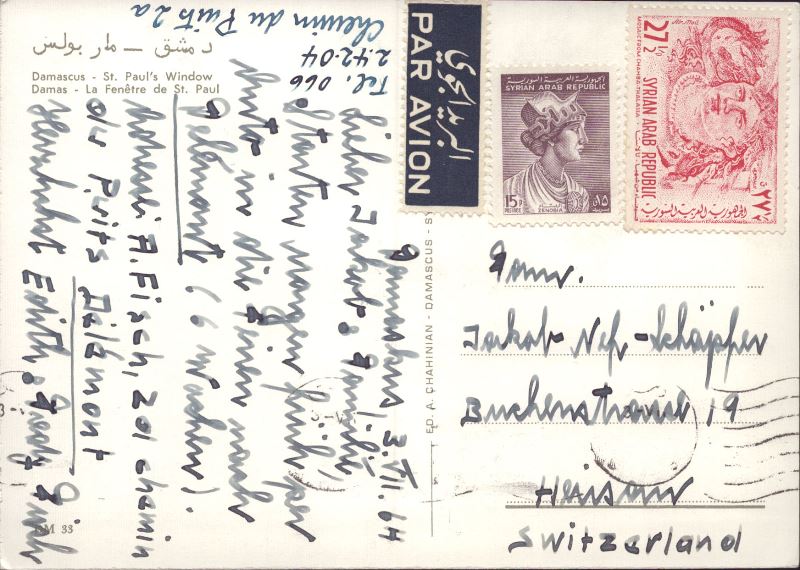 دمشق — مار بولس
Damascus - St. Paul's Window
Damas - La Fenêtre de St. Paul
Tel. 066
2.42.04
Chemin du Puits 2a
البريد الجوي
PAR AVION
الجمهورية العربية السورية
SYRIAN ARAB REPUBLIC
15 P
POSTAGE
ZENOBIA
Air Mail
27 1/2
SYRIAN ARAB REPUBLIC
MOSAIC FROM CHAHBA-THALASSA
الجمهورية العربية السورية
Damaskus, 3. VII. 64
Lieber Jakob, Familie,
Starten morgen früh per
Auto in die Ferien nach
Delémont (6 Wochen).
A. Fisch, 201 chemin
du Puits Delémont
Herzlichst Edith, Fredy
ED. A. CHAHINIAN - DAMASCUS - SY
Fam.
Jakob Nef-Schäpper
Buchenstrasse 19
Herisau
Switzerland
DM 33